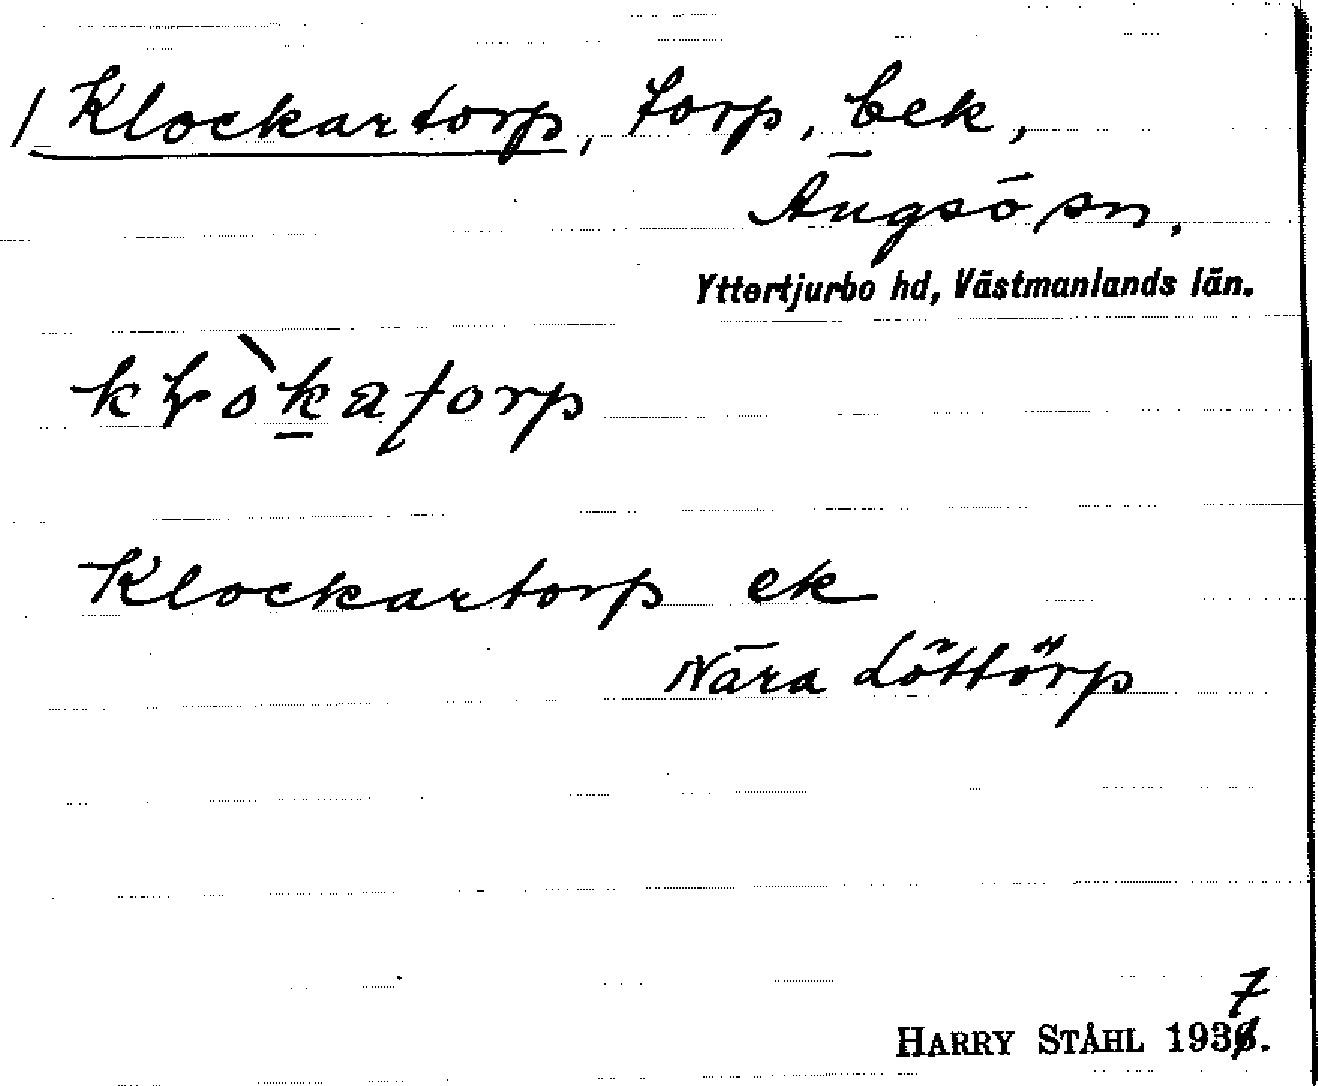 / Klockartorp, torp, bek,
Ängsö sn,
Yttertjurbo hd, Västmanlands län.
Klockartorp ek
Nära Löttörp
HARRY STÅHL 1937.